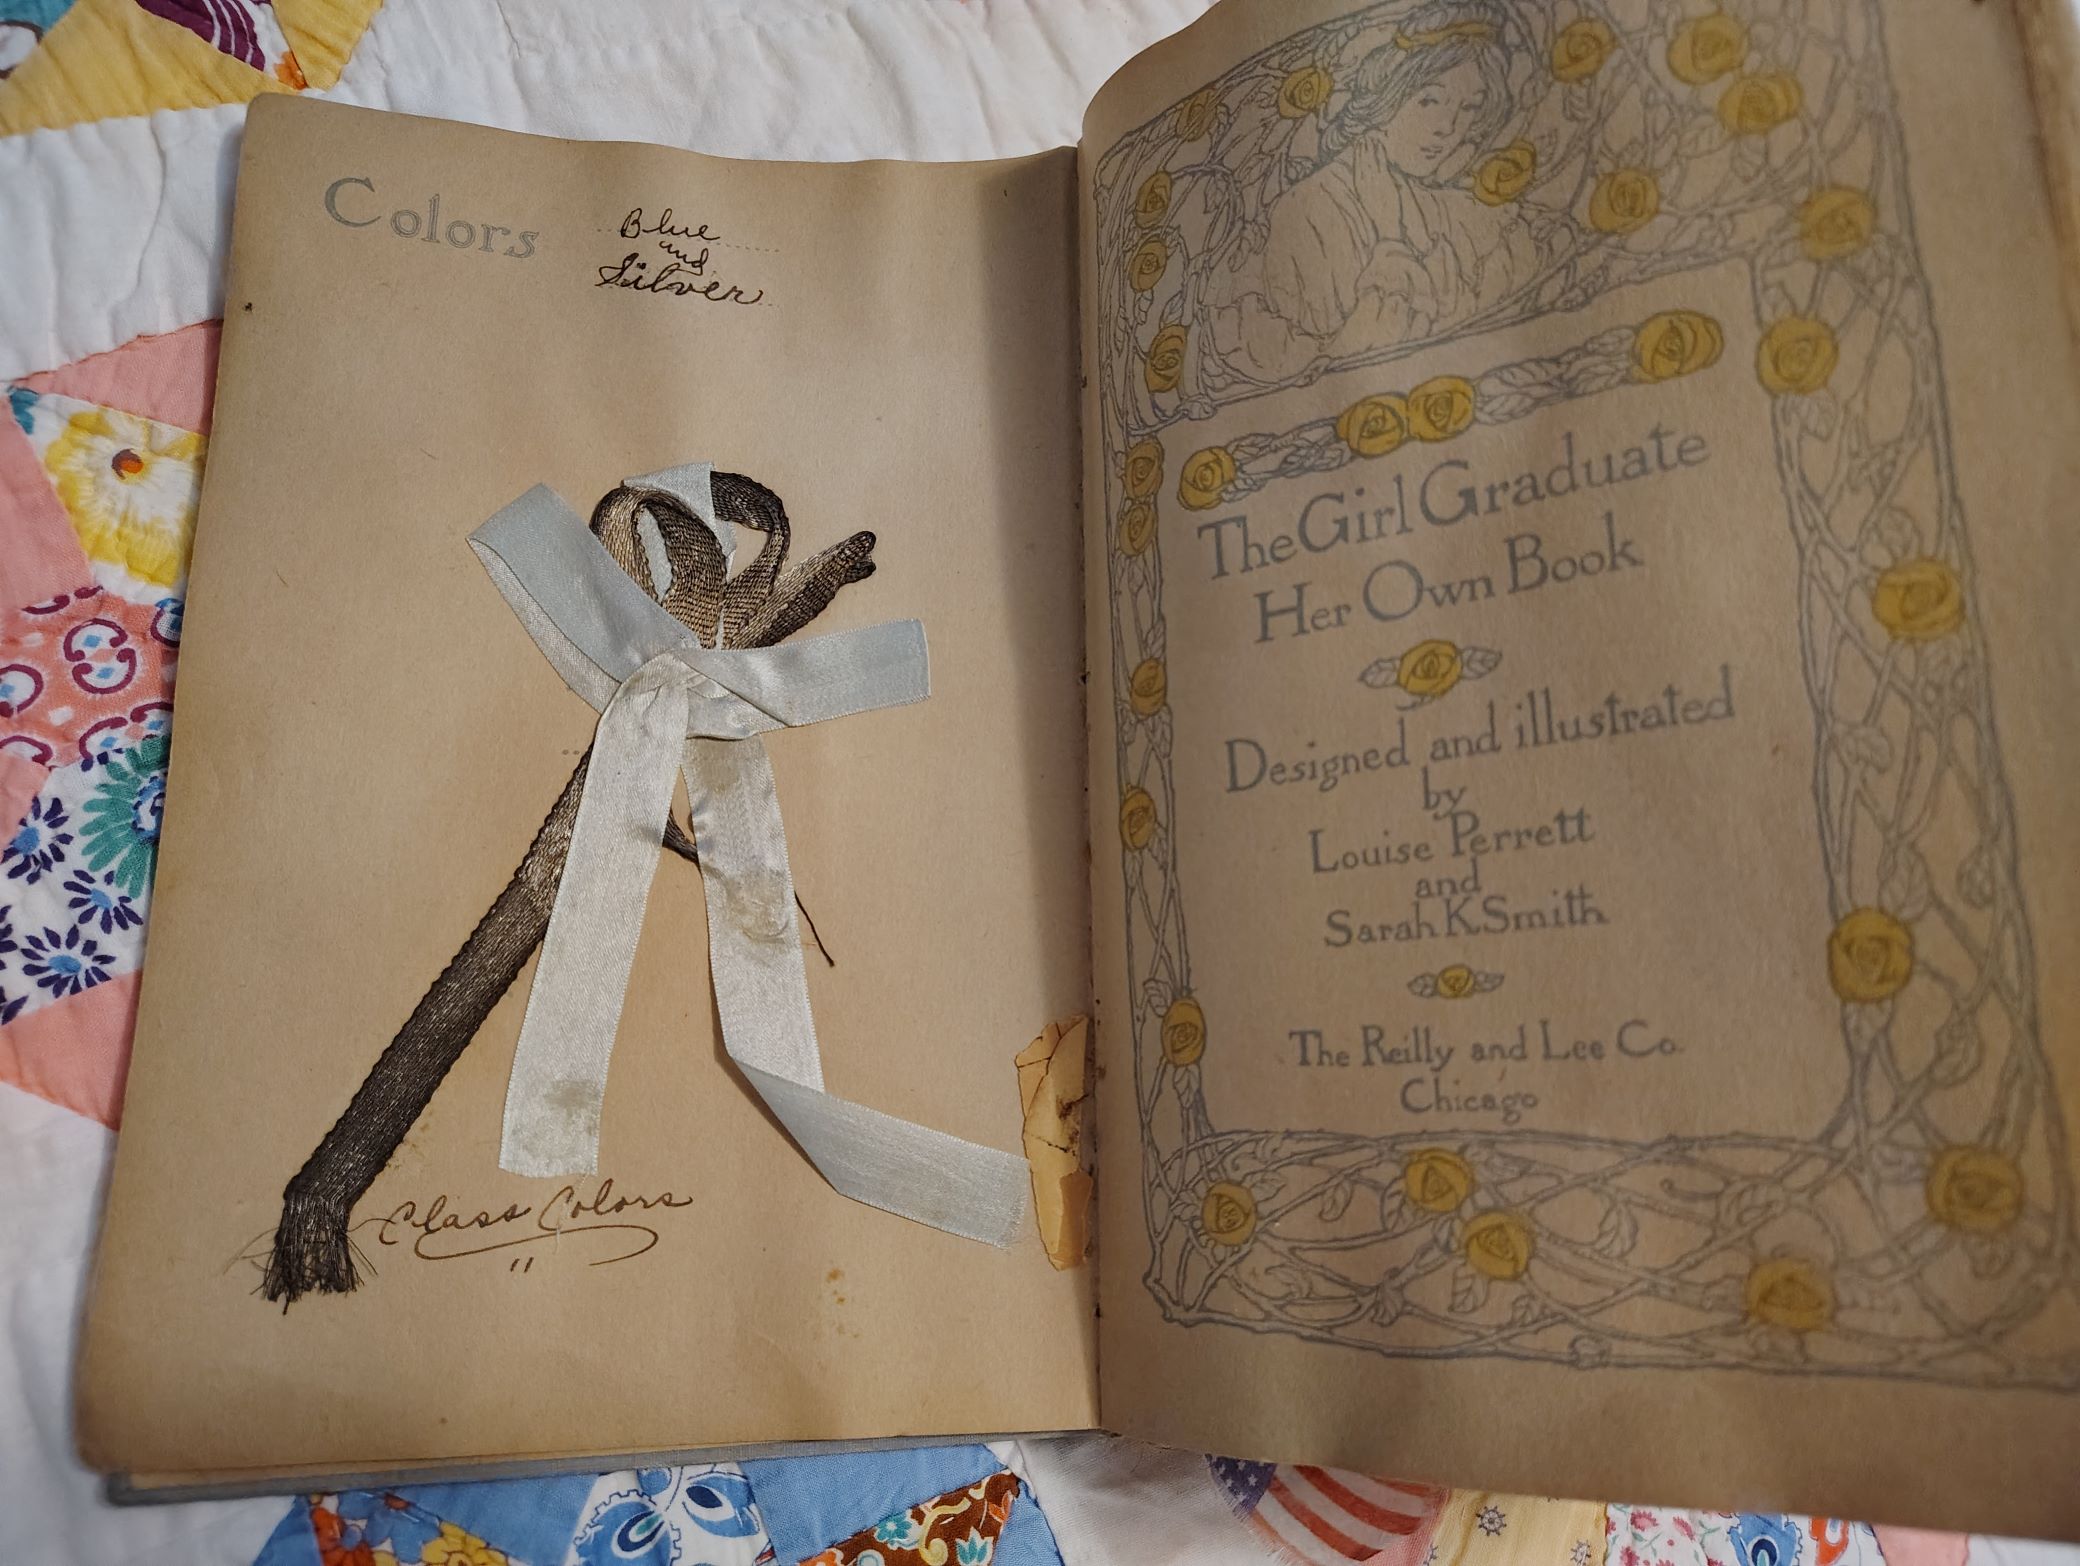 Colors
Blue
and
Silver
Class Colors
"
The Girl Graduate
Her Own Book
Designed and illustrated
by
Louise Perrett
and
Sarah K Smith
The Reilly and Lee Co.
Chicago